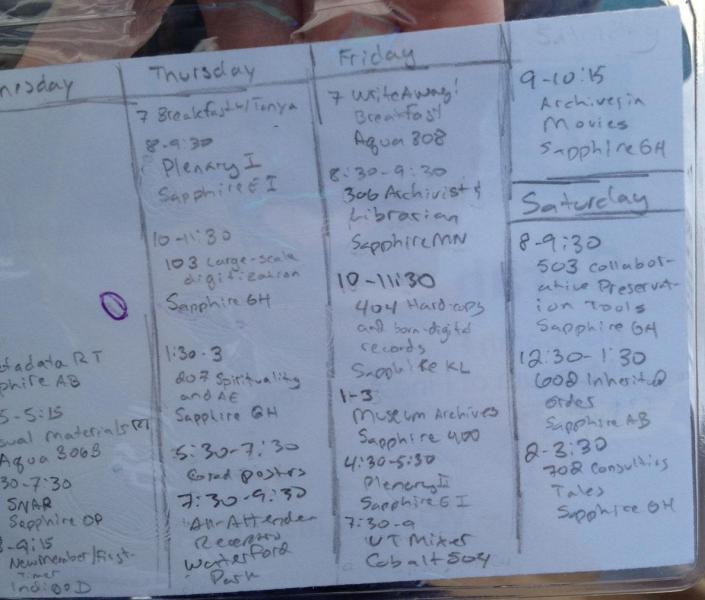 nesday
tadata RT
phire AB
5-5:15
sual Materials RT
Aqua 306B
30-7:30
SNAR
Sapphire OP
-9:15
New member/First-
Timer
Indigo D
Thursday
7 Breakfast w/Tanya
8-9:30
Plenary I
Sapphire E I
10-11:30
103 Large-scale
digitization
Sapphire GH
1:30-3
207 Spirituality
and AE
Sapphire GH
5:30-7:30
Grad posters
7:30-9:30
All-Attendee
Reception
Waterford
Park
Friday
7 Write Away!
Breakfast
Aqua 308
8:30-9:30
306 Archivist &
Librarian
Sapphire MN
10-11:30
404 Hard cops
and born-digital
records
Sapphire KL
1-3
Museum Archives
Sapphire 400
4:30-5:30
Plenary II
Sapphire E I
7:30-9
UT Mixer
Cobalt 504
Saturday
9-10:15
Archives in
Movies
Sapphire GH
Saturday
8-9:30
503 collabor-
ative Preservat-
ion Tools
Sapphire GH
12:30-1:30
602 Inherited
order
Sapphire AB
2-3:30
702 Consulting
Tales
Sapphire GH